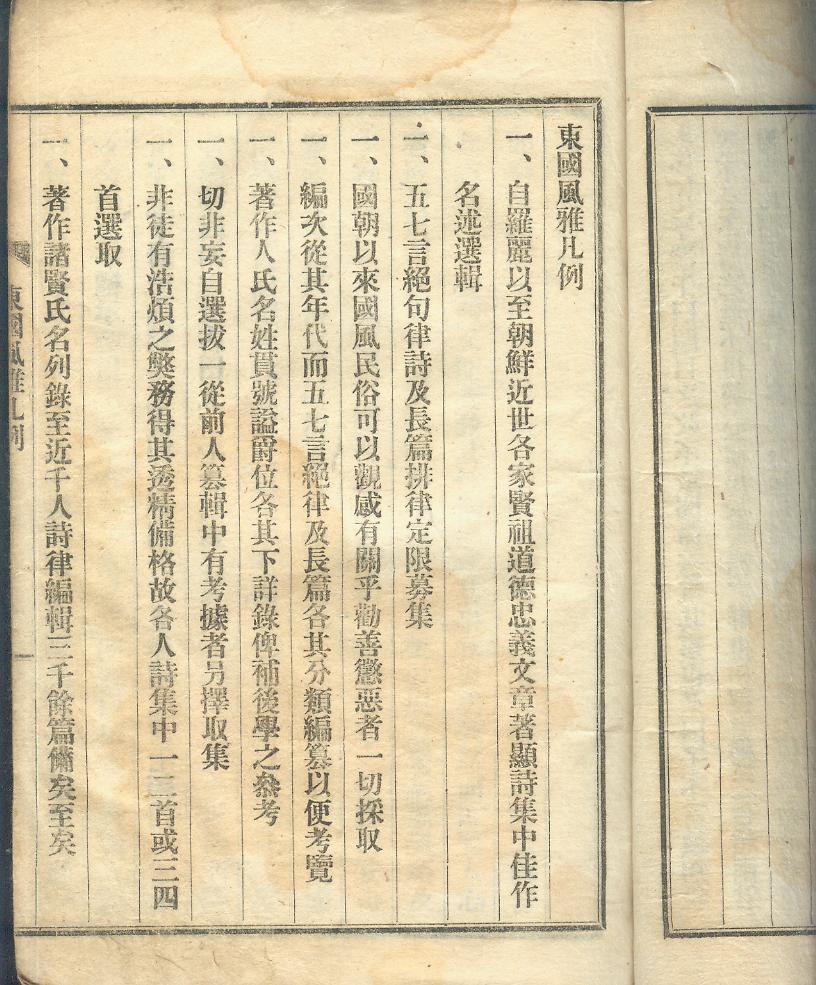 東國風雅凡例
一、自羅麗以至朝鮮近世各家賢祖道德忠義文章著顯詩集中佳作
名述選輯
一、五七言絕句律詩及長篇排律定限募集
一、國朝以來國風民俗可以觀感有關乎勸善懲惡者一切採取
一、編次從其年代而五七言絕律及長篇各其分類編篡以便考覽
一、著作人氏名姓貫號謚爵位各其下詳錄俾補後學之叅考
一、切非妄自選拔一從前人篡輯中有考據者另擇取集
一、非徒有浩煩之獘務得其透精備格故各人詩集中一二首或三四
首選取
一、著作諸賢氏名列錄至近千人詩律編輯三千餘篇備矣至矣
東國風雅凡例
一